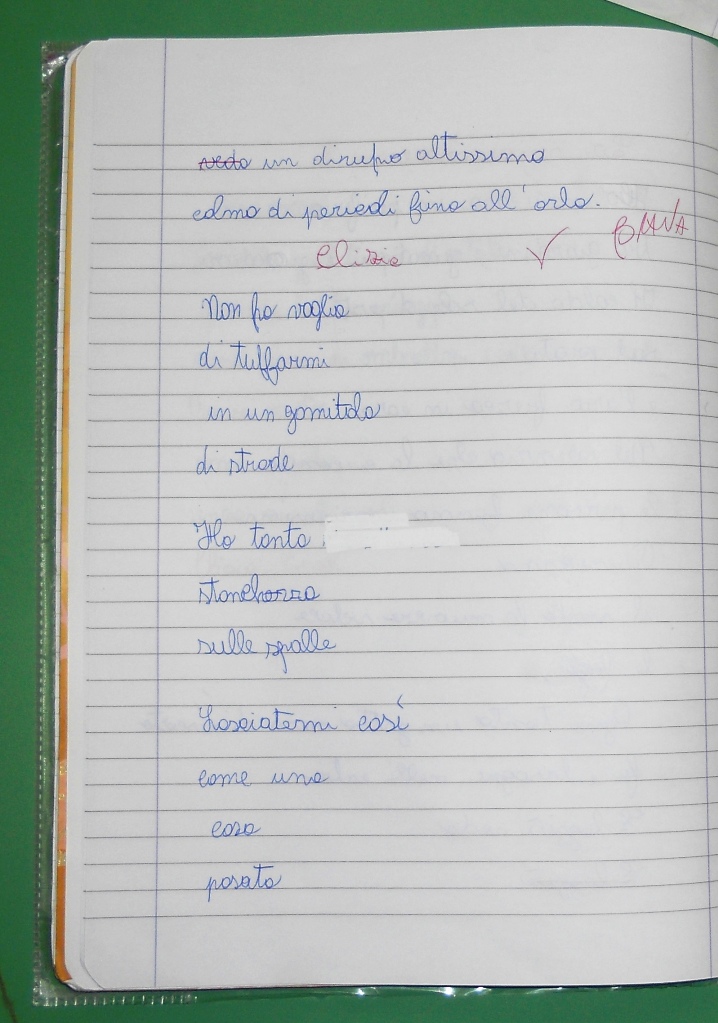 vedo un dirupo altissimo
colmo di pericoli fino all'orlo.
BRAVA
Non ho voglia
di tuffarmi
in un gomitolo
di strade
Ho tanta
stanchezza
sulle spalle
Lasciatemi così
come una
cosa
posata